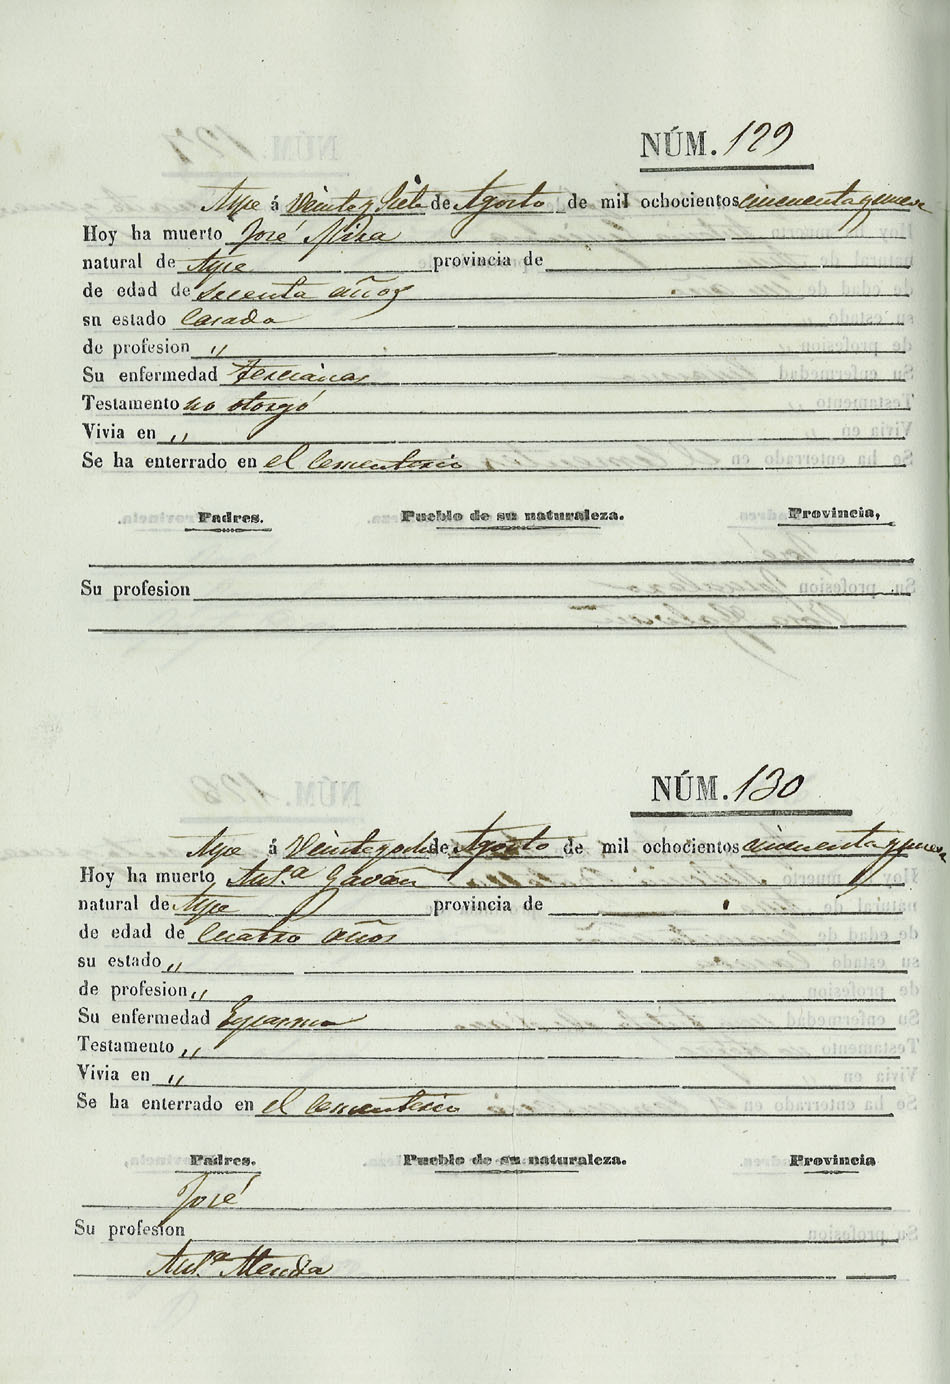 NÚM. 129
Aspe á Veinte y siete de Agosto de mil ochocientos cincuenta y nueve
Hoy ha muerto José Mira
natural de Aspe provincia de
de edad de años
sn estado Casada
de profesion „
Su enfermedad Tercianas
Testamento no otorgó
Vivia en „
Se ha enterrado en el Cementerio
Padres. Pueblo de su naturaleza. Provincia,
Su profesion
NÚM. 130
Aspe á de Agosto de mil ochocientos cincuenta y nueve
Hoy ha muerto Ant.ª Gaván
natural de Aspe provincia de
de edad de Cuatro años
su estado „
de profesion „
Su enfermedad
Testamento „
Vivia en „
Se ha enterrado en el Cementerio
Padres. Pueblo de su naturaleza. Provincia
José
Su profesion
Ant.ª